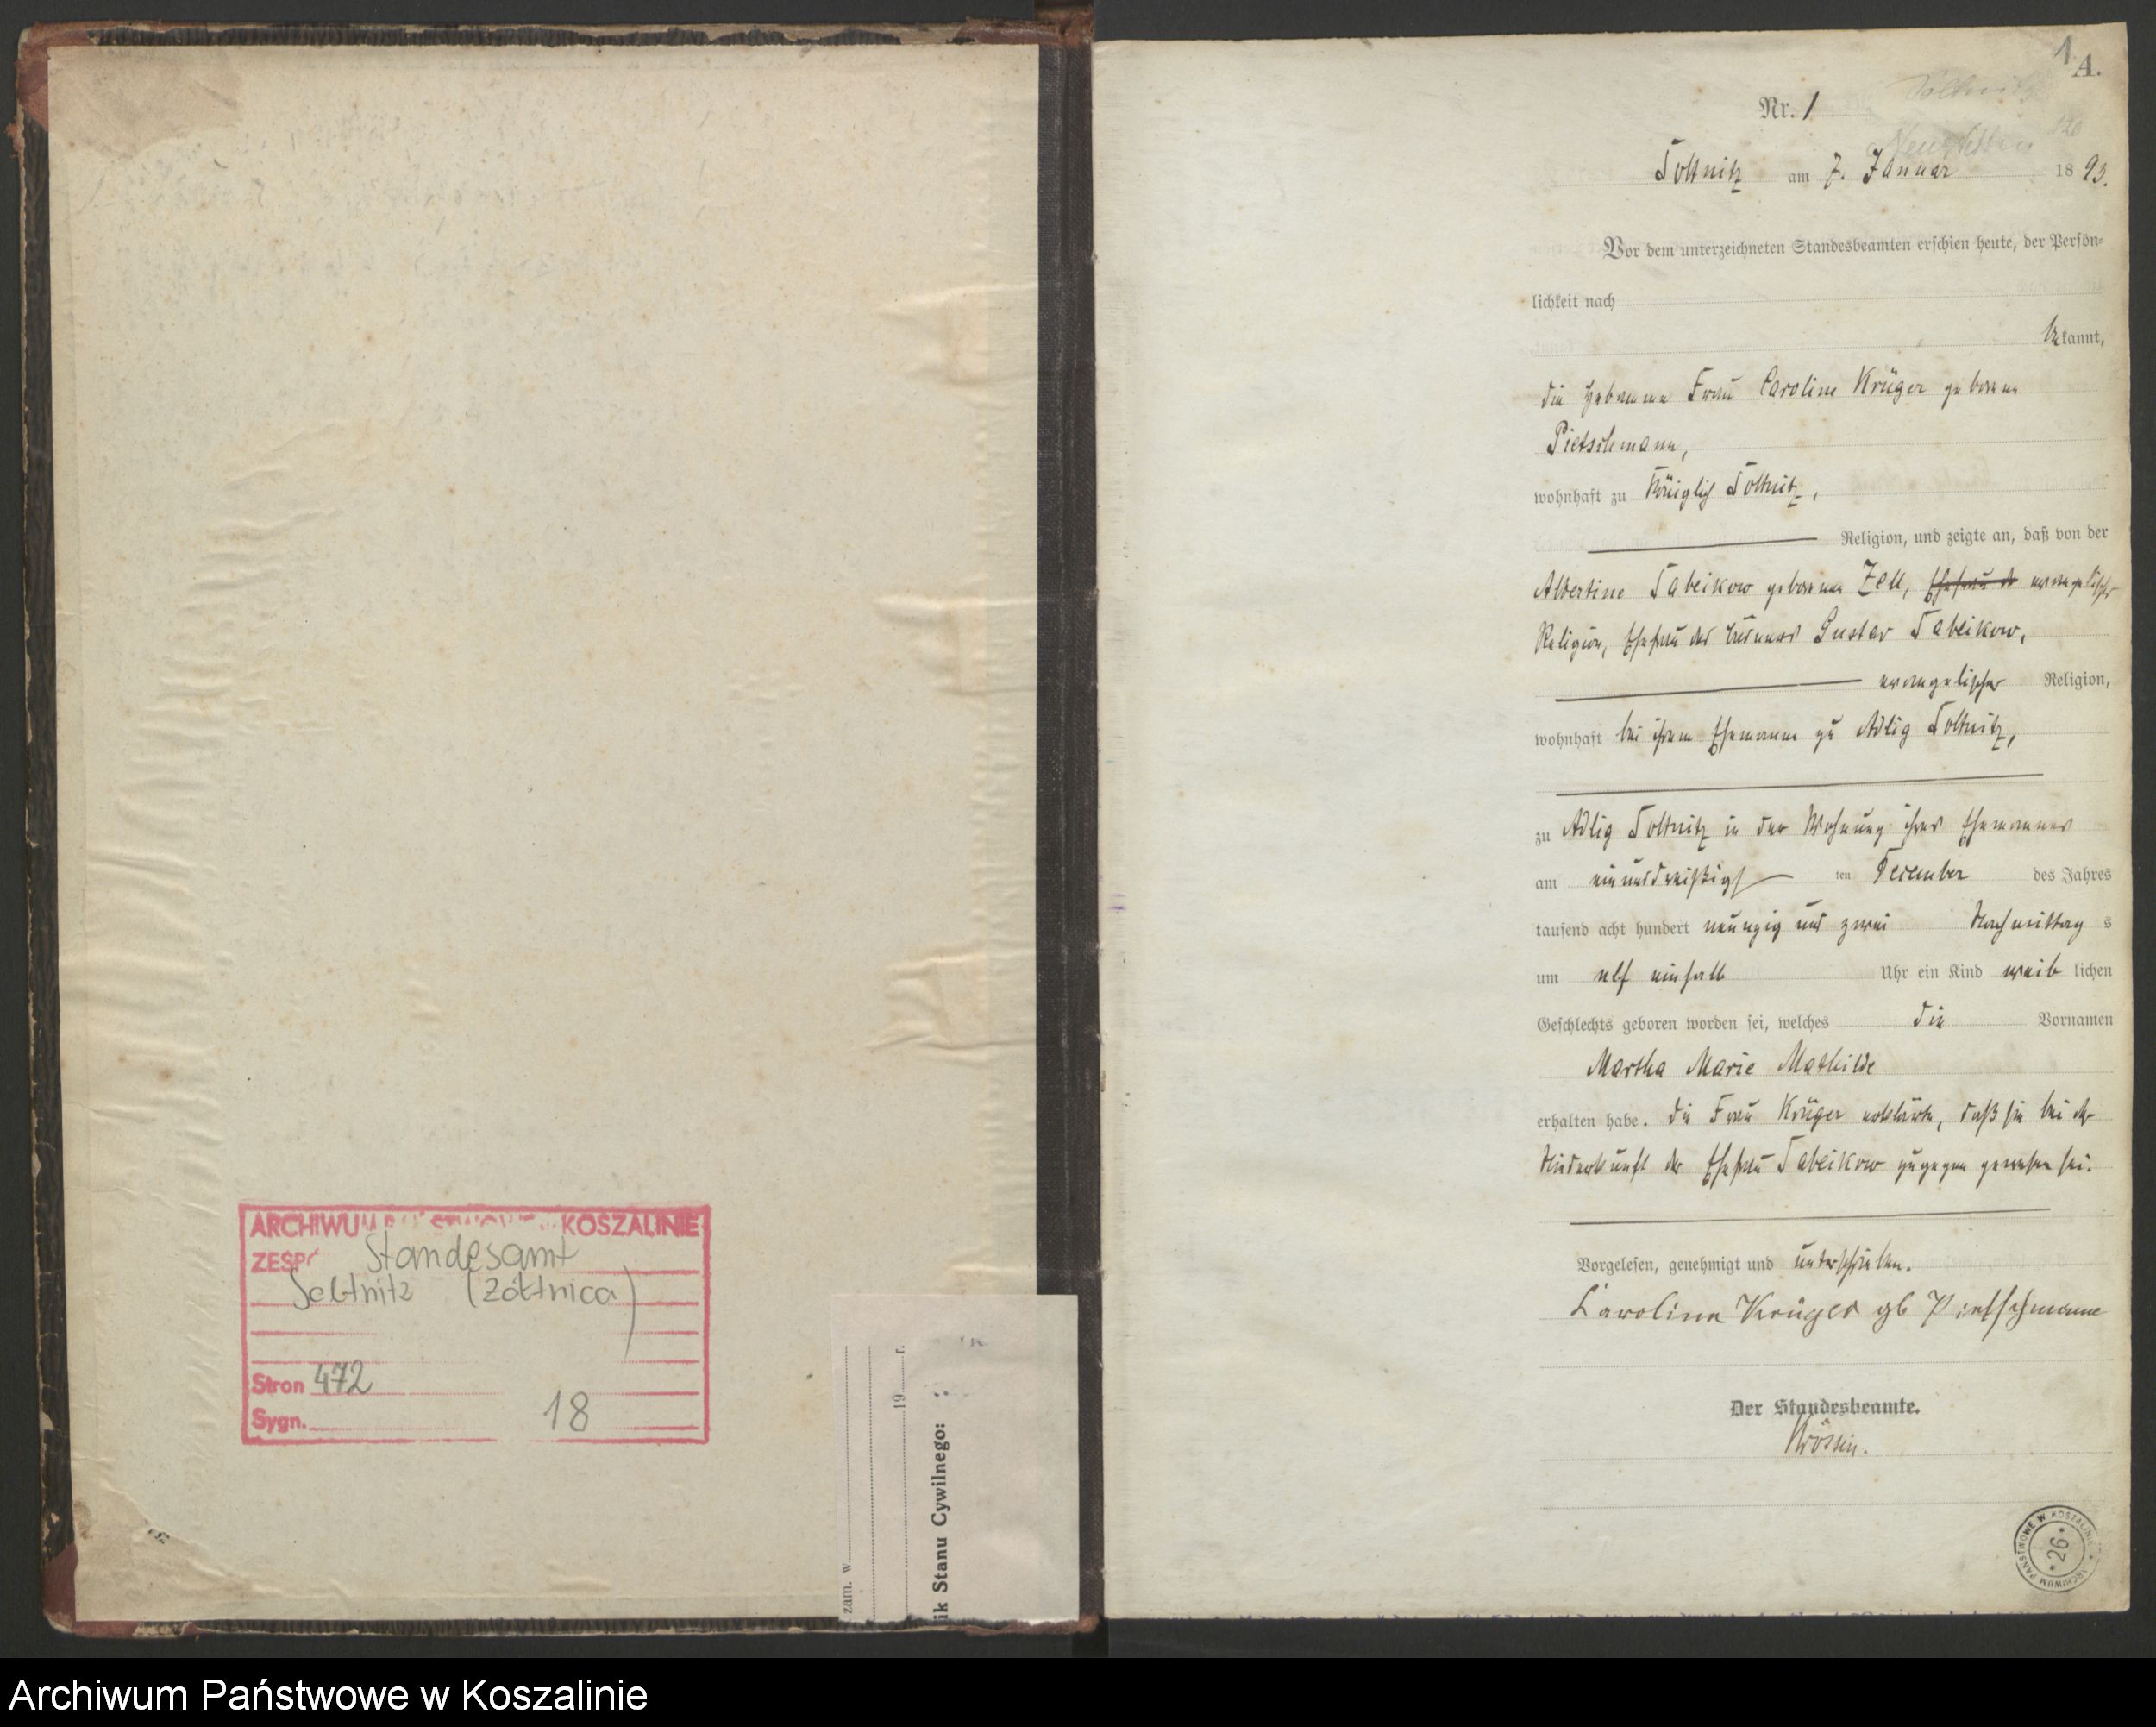 ARCHIWUM KOSZALINIE
Standesamt
Soltnitz (Żółtnica)
Stron 472
Sygn. 18
zam. w
19 r.
ik Stanu Cywilnego:
1
A.
Nr. 1
Soltnitz am 7. Januar 1893.
Vor dem unterzeichneten Standesbeamten erschien heute, der Persön-
lichkeit nach
bekannt,
die Hebamme Frau Caroline Krüger geborene
Pietschmann,
wohnhaft zu Königlich Soltnitz,
Religion, und zeigte an, daß von der
Albertine Tabeikow geborenen Zell, Ehefrau d evangelischer
Religion, Ehefrau des Büdners Gustav Tabeikow,
evangelischer Religion,
wohnhaft bei ihrem Ehemanne zu Adlig Soltnitz,
zu Adlig Soltnitz in der Wohnung ihres Ehemannes
am einunddreißigs ten December des Jahres
tausend acht hundert neunzig und zwei Nachmittag s
um elf einhalb Uhr ein Kind weib lichen
Geschlechts geboren worden sei, welches die Vornamen
Martha Marie Mathilde
erhalten habe. Die Frau Krüger erklärte, daß sie bei der
Niederkunft der Ehefrau Tabeikow zugegen gewesen sei.
Vorgelesen, genehmigt und unterschrieben.
Caroline Krüger gb Pietschmann
Der Standesbeamte.
Krössin.
ARCHIWUM PAŃSTWOWE W KOSZALINIE
* 26 *
Archiwum Państwowe w Koszalinie